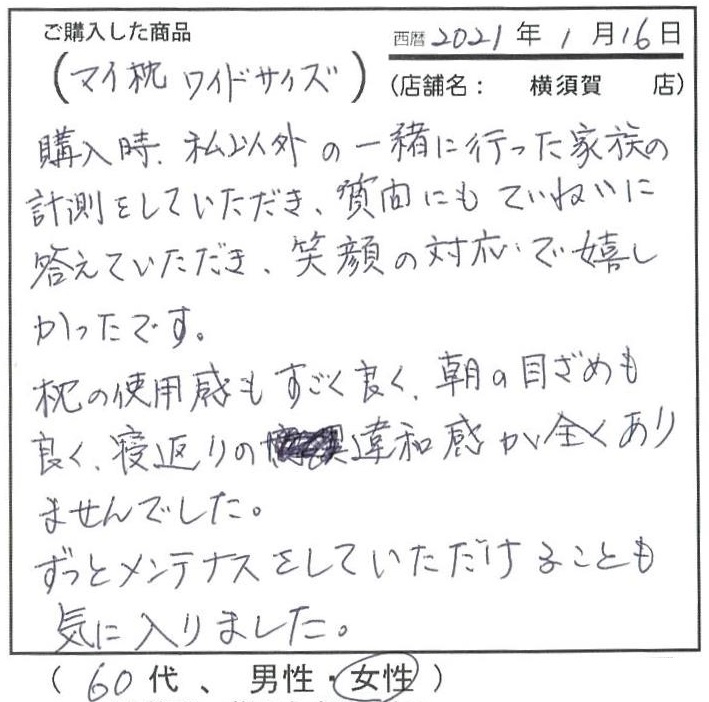 ご購入した商品
西暦 2021 年 1 月 16 日
(マイ枕 ワイドサイズ)
(店舗名： 横須賀 店)
購入時、私以外の一緒に行った家族の
計測をしていただき、質問にもていねいに
答えていただき、笑顔の対応で嬉し
かったです。
枕の使用感もすごく良く、朝の目ざめも
良く、寝返りの違和感が全くあり
ませんでした。
ずっとメンテナスをしていただけることも
気に入りました。
( 60 代 、 男性・女性 )